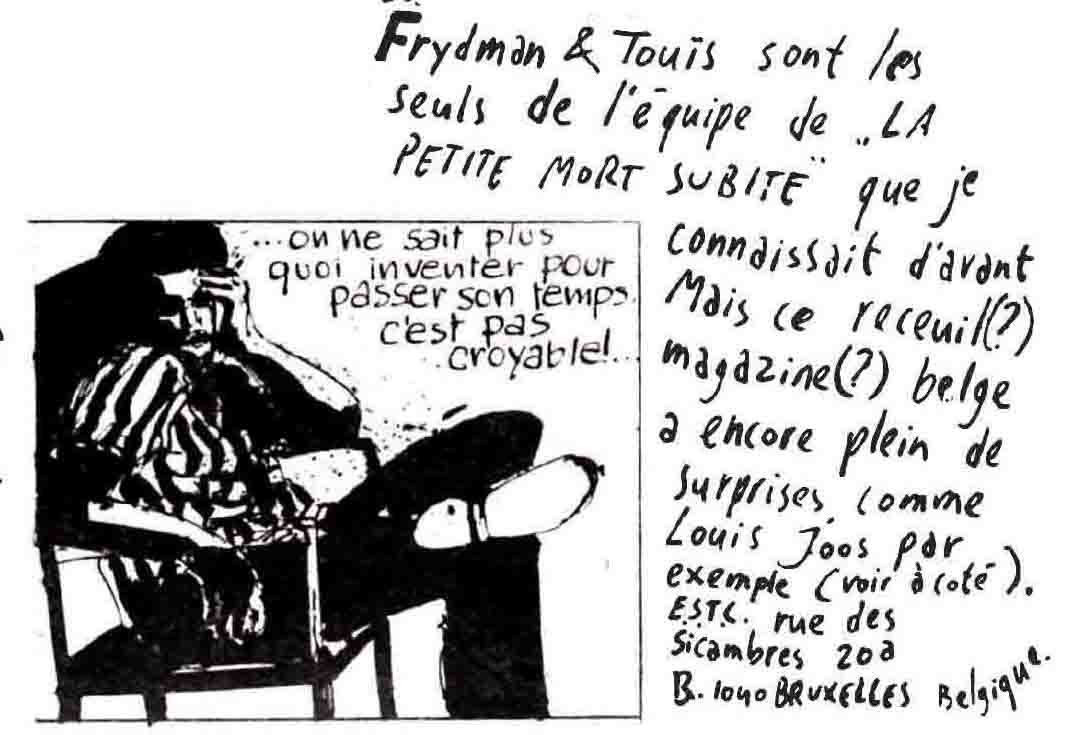 Frydman & Touïs sont les
seuls de l'équipe de „LA
PETITE MORT SUBITE" que je
connaissait d'avant
Mais ce receuil(?)
magazine(?) belge
a encore plein de
surprises, comme
Louis Joos par
exemple (voir à coté).
E.S.T.C. rue des
Sicambres 20a
B. 1040 BRUXELLES Belgique.
...on ne sait plus
quoi inventer pour
passer son temps.
c'est pas
croyable!...